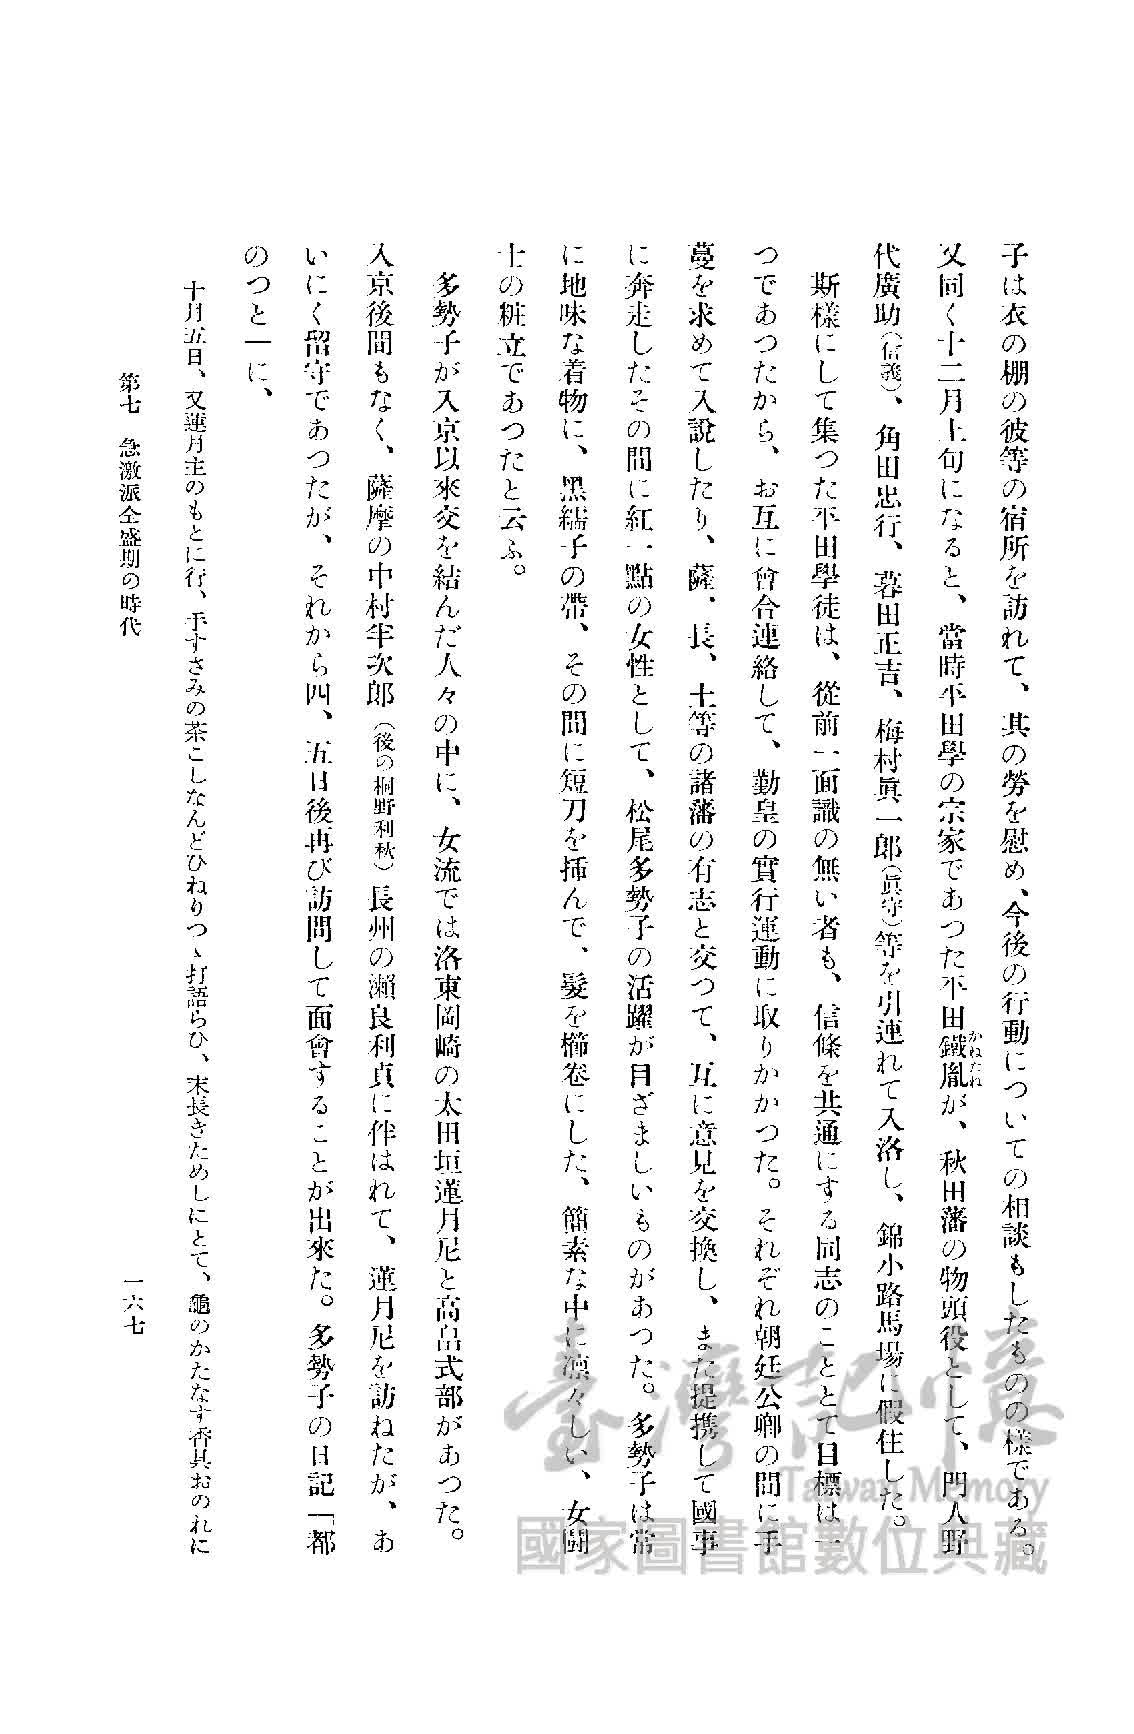 子は衣の棚の彼等の宿所を訪れて、其の勞を慰め、今後の行動についての相談もしたものの樣である。
又同く十二月上旬になると、當時平田學の宗家であつた平田鐵胤が、秋田藩の物頭役として、門人野
かねたね
代廣助（信義）、角田忠行、暮田正吉、梅村眞一郎（眞守）等を引連れて入洛し、錦小路馬場に假住した。
斯樣にして集つた平田學徒は、從前一面識の無い者も、信條を共通にする同志のこととて目標は一
つであつたから、お互に會合連絡して、勤皇の實行運動に取りかかつた。それぞれ朝廷公卿の間に手
蔓を求めて入說したり、薩、長、土等の諸藩の有志と交つて、互に意見を交換し、また提携して國事
に奔走したその間に紅一點の女性として、松尾多勢子の活躍が目ざましいものがあつた。多勢子は常
に地味な着物に、黑繻子の帶、その間に短刀を揷んで、髮を櫛卷にした、簡素な中に凛々しい、女鬪
士の粧立であつたと云ふ。
多勢子が入京以來交を結んだ人々の中に、女流では洛東岡崎の太田垣蓮月尼と高畠式部があつた。
入京後間もなく、薩摩の中村半次郎（後の桐野利秋）長州の瀨良利貞に伴はれて、蓮月尼を訪ねたが、あ
いにく留守であつたが、それから四、五日後再び訪問して面會することが出來た。多勢子の日記「都
のつと」に、
十月五日、又蓮月主のもとに行、手すさみの茶こしなんどひねりつゝ打語らひ、末長きためしにとて、龜のかたなす香具おのれに
第七　急激派全盛期の時代
一六七
臺灣記憶
Taiwan Memory
國家圖書館數位典藏